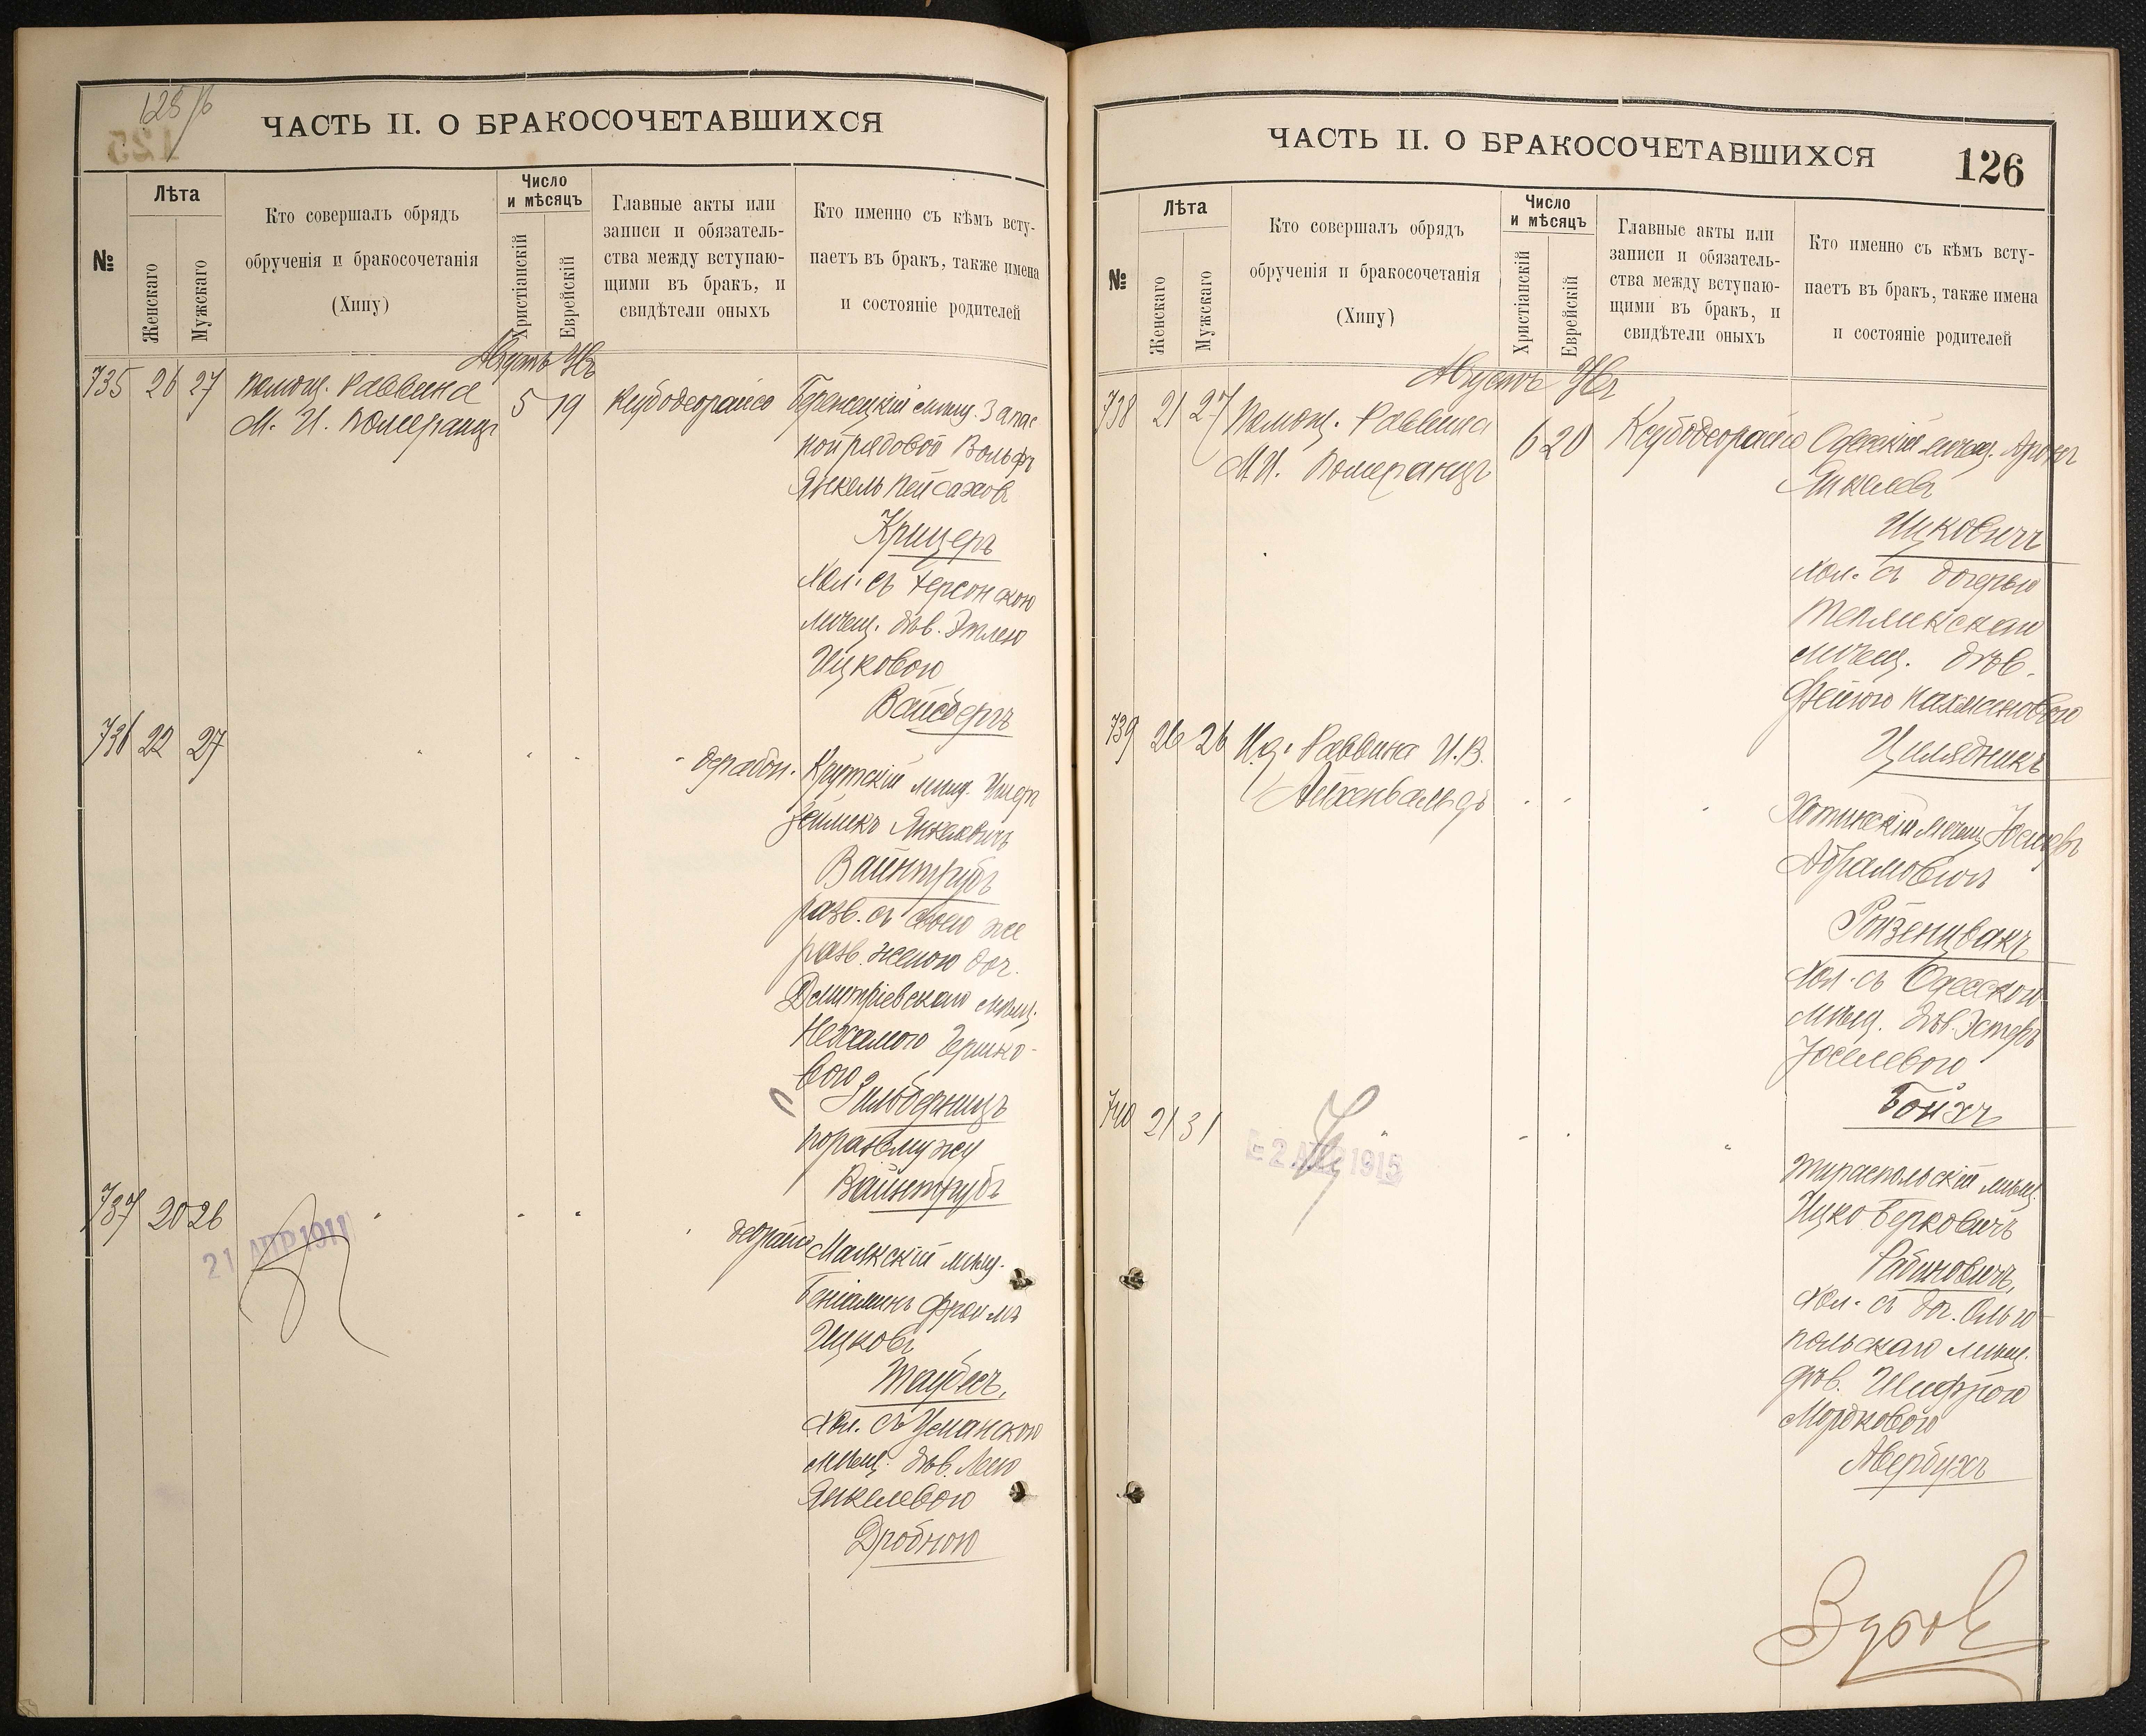 125 об
ЧАСТЬ II. О БРАКОСОЧЕТАВШИХСЯ
№
Лѣта
Женскаго
Мужскаго
Кто совершалъ обрядъ
обрученія и бракосочетанія
(Хипу)
Число
и мѣсяцъ
Христіанскій
Еврейскій
Главные акты или
записи и обязатель-
ства между вступаю-
щими въ бракъ, и
свидѣтели оныхъ
Кто именно съ кѣмъ всту-
паетъ въ бракъ, также имена
и состояніе родителей
Августъ
735 26 27 Помощ. Раввина
М. И. Померанцъ
5 19
мѣщ. Запас
ной рядовой Вольфъ
Янкель Пейсаховъ
Крицеръ
хол. съ Херсонскою
мѣщ. дѣв. Этлею
Ицковою
Вайсбергъ
736 22 27
мѣщ. Ушеръ
Зейликъ Янкелевичъ
Вайнтрубъ
разв. съ своею же
разв. женою доч.
Дмитріевскаго мѣщ.
Нехамою Гершко-
вою
Зильберницъ
по разв. мужу
Вайнтрубъ
737 20 26
21 АПР 1911
Маякскій мѣщ.
Беніаминъ Фроимъ
Ицковъ
Таубесъ,
хол. съ Уманскою
мѣщ. дѣв. Леею
Янкелевою
Дробною
ЧАСТЬ II. О БРАКОСОЧЕТАВШИХСЯ
126
№
Лѣта
Женскаго
Мужскаго
Кто совершалъ обрядъ
обрученія и бракосочетанія
(Хипу)
Число
и мѣсяцъ
Христіанскій
Еврейскій
Главные акты или
записи и обязатель-
ства между вступаю-
щими въ бракъ, и
свидѣтели оныхъ
Кто именно съ кѣмъ всту-
паетъ въ бракъ, также имена
и состояніе родителей
Августъ
738 21 27 Помощ. Раввина
М. И. Померанцъ
6 20
Одесскій мѣщ. Аронъ
Янкелевъ
Ицковичъ
хол. съ дочерью
Тепликскаго
мѣщ. дѣв.
Фейгою Нахмановою
739 26 26 И.д. Раввина И.В.
Айхенвальдъ
Хотинскій мѣщ. Іосифъ
Абрамовичъ
Ройзенцвакъ
хол. съ Одесскою
мѣщ. дѣв. Эстерь
Іоселевою
Бойхъ
740 21 31
2 АПР 1915
Тираспольскій мѣщ.
Ицко Берковичъ
Рабиновичъ,
хол. съ доч. Ольго-
польскаго мѣщ.
дѣв. Шифрою
Мордковою
Авербухъ